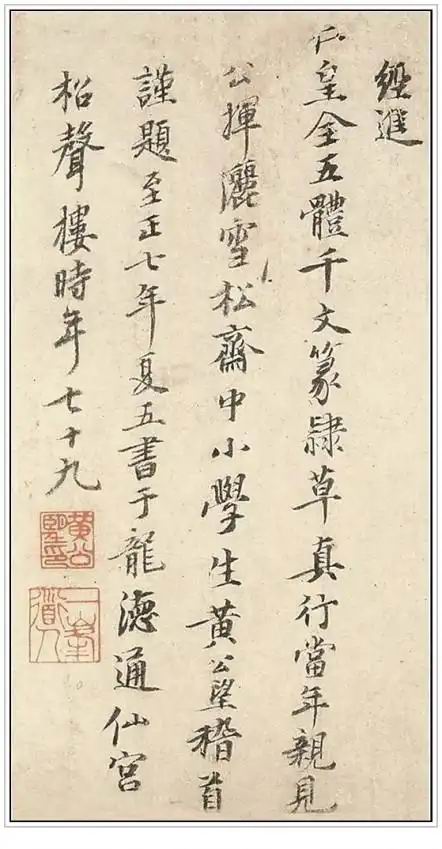 經進
仁皇全五體千文篆隸草真行當年親見
公揮灑雪松齋中小學生黃公望稽首
謹題至正七年夏五書于龍德通仙宮
柗聲樓時年七十九
黃公望印
一峯道人